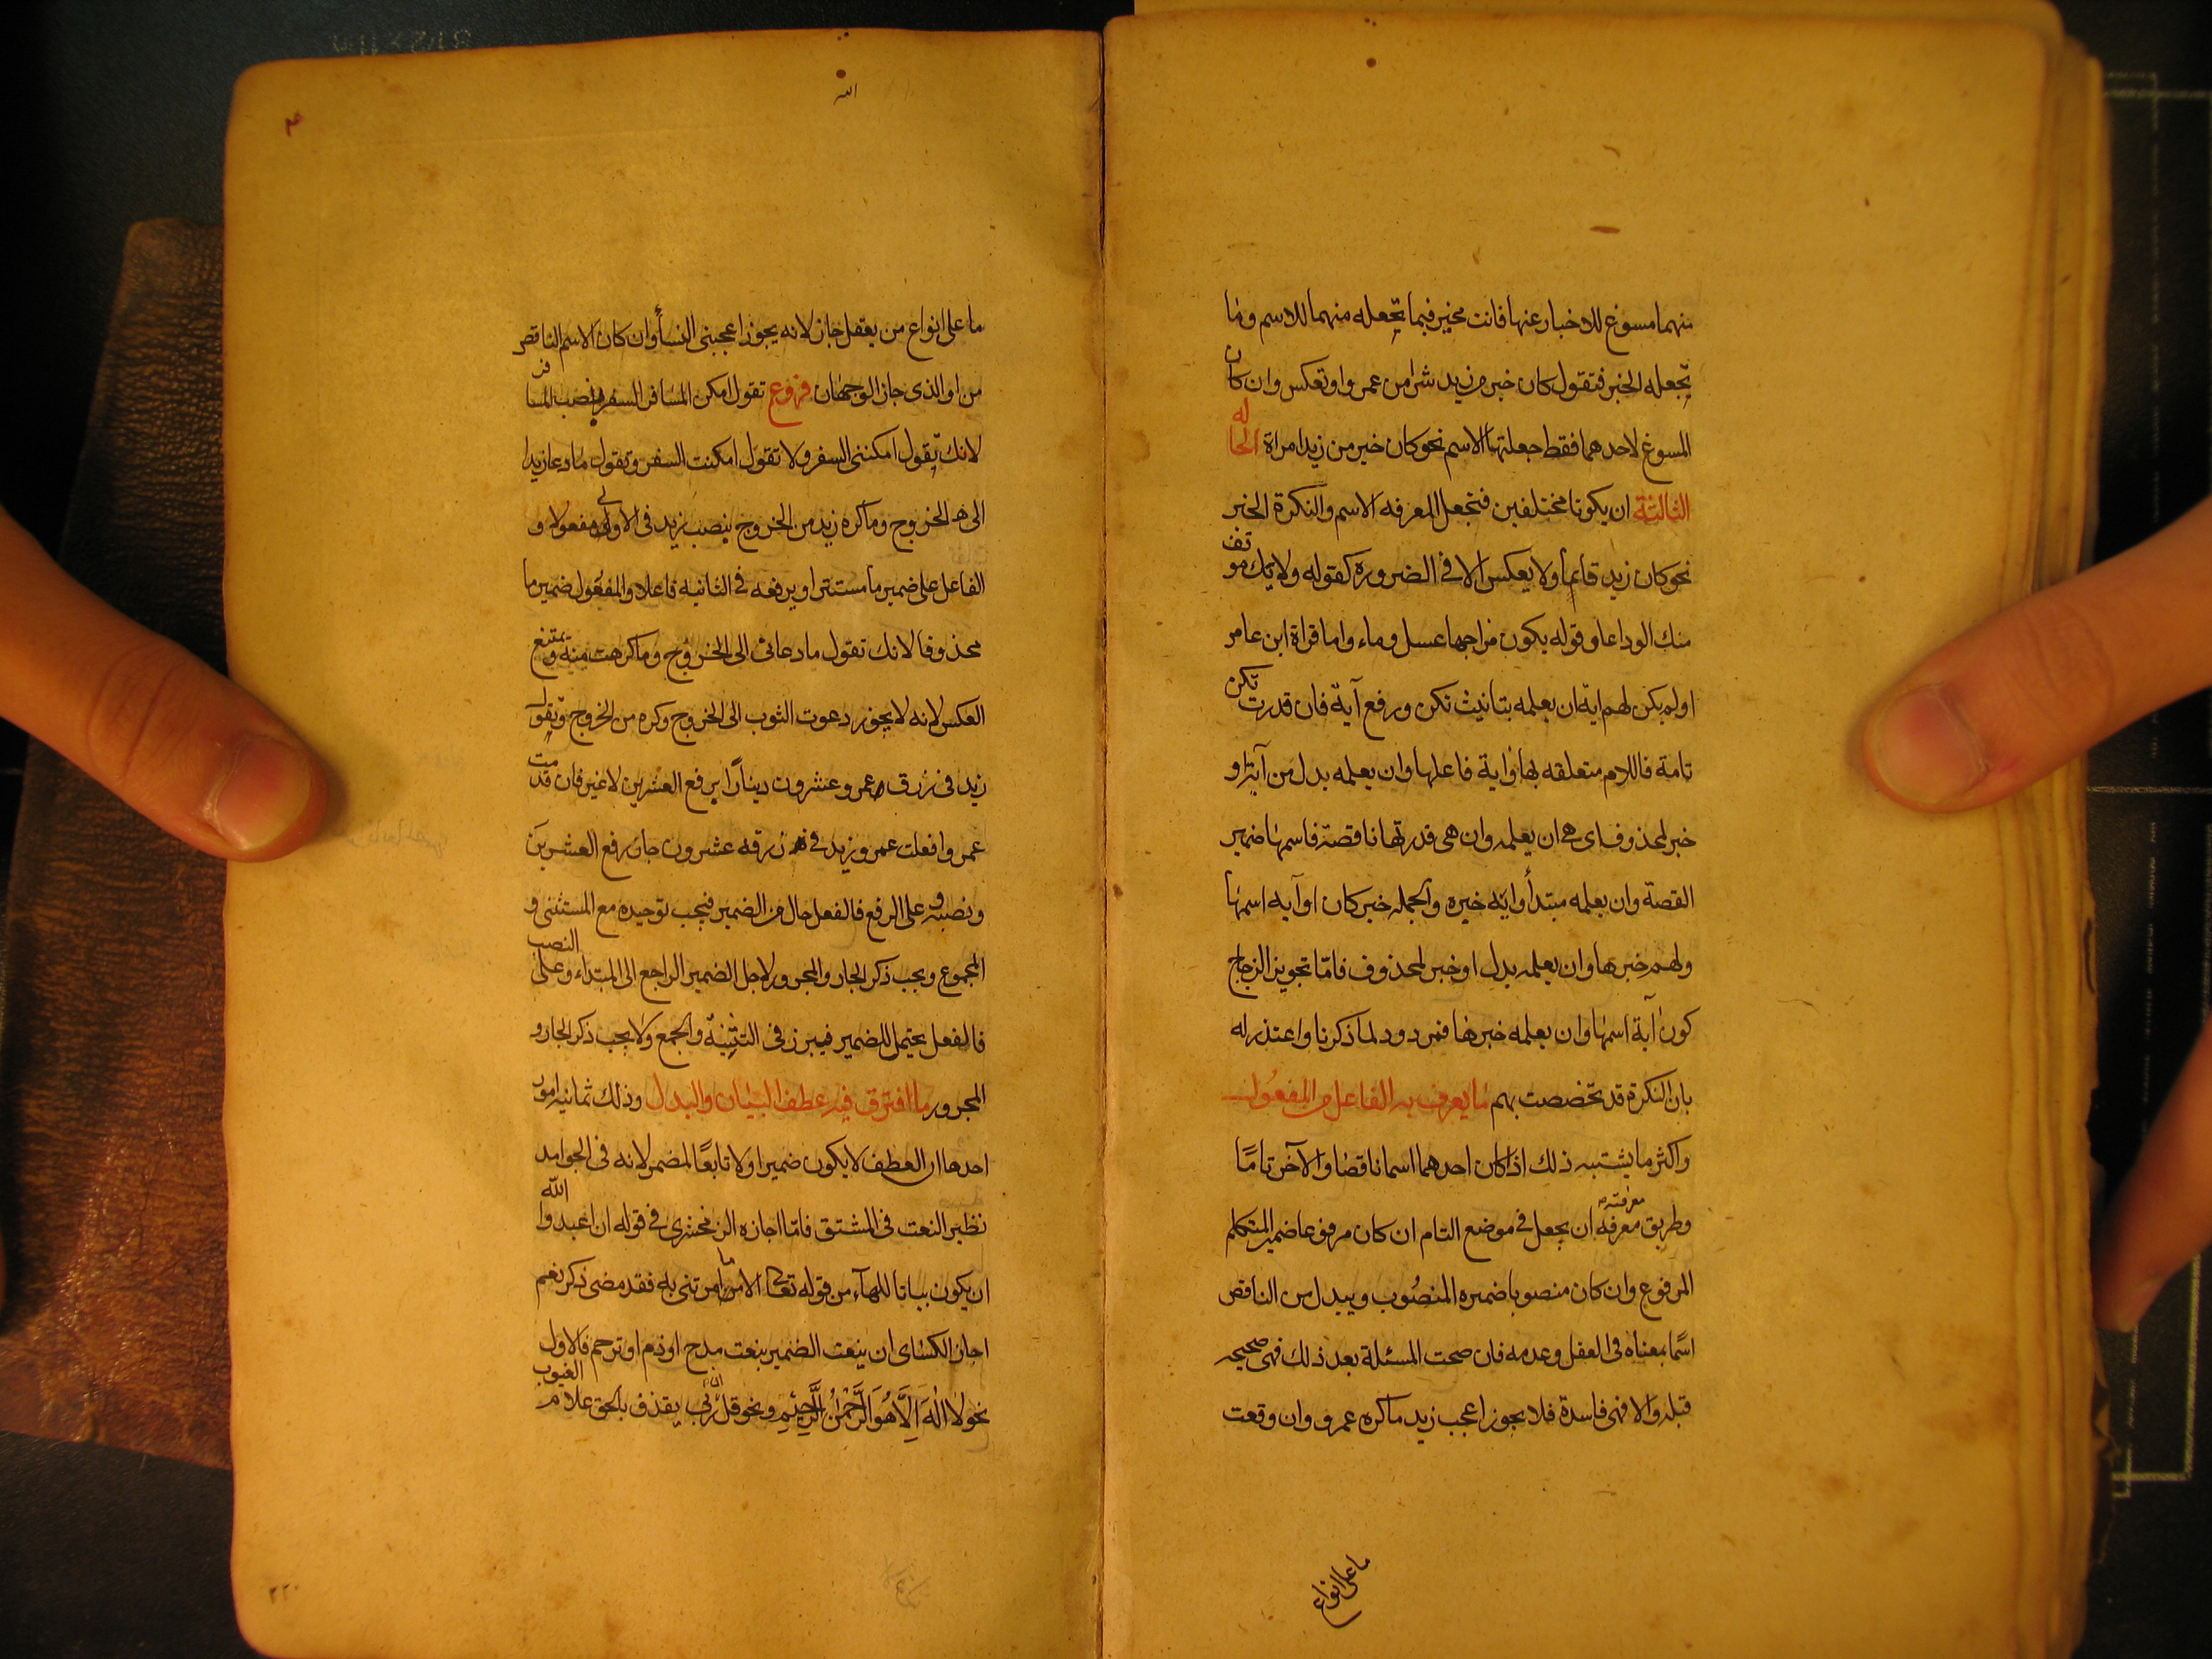 منهما مسوغ للاخبار عنها فانت مخير فيما تجعله منهما للاسم وما
تجعله الخبر فتقول كان خير من زيد شرا من عمرو او تعكس وان كان
المسوغ لاحدهما فقط جعلتها الاسم نحو كان خير من زيد امراة الحاله
الثالثة ان يكونا مختلفين فتجعل المعرفه الاسم والنكرة الخبر
نحو كان زيد قائما ولا يعكس الا في الضروره كقوله ولا يك موقف
منك الوداعا وقوله يكون مزاجها عسل وماء واما قراة ابن عامر
اولم يكن لهم اية ان يعلمه بتانيث تكن ورفع آية فان قدرت تكن
تامة فاللام متعلقه بها واية فاعلها وان يعلمه بدل من آية او
خبر لمحذوف اى هى ان يعلمه وان هى قدرتها ناقصة فاسمها ضمير
القصة وان يعلمه مبتدأ واية خبره والجمله خبر كان او آية اسمها
ولهم خبرها وان يعلمه بدل او خبر لمحذوف فامّا تجويز الزجاج
كون آية اسمها وان يعلمه خبرها فمردود لما ذكرنا واعتذر له
بان النكرة قد تخصصت بهم ما يعرف به الفاعل من المفعول
واكثر ما يشتبه ذلك اذا كان احدهما اسما ناقصا والآخر تامًا
معرفته
وطريق معرفه ان يجعل في موضع التام ان كان مرفوعا ضمير المتكلم
المرفوع وان كان منصوبا ضميره المنصوب ويبدل من الناقص
اسمًا بمعناه فى العقل وعدمه فان صحت المسئلة بعد ذلك فهى صحيحه
قبله والا فهى فاسدة فلا يجوز اعجب زيد ما كره عمرو وان وقعت
ما على انواع
الله
ما على انواع من يعقل جاز لانه يجوز اعجبنى النسأ وان كان الاسم الناقص
من او الذى جاز الوجهان فروع تقول امكن المسافر السفر بنصب المسافر
لانك تقول امكننى السفر ولا تقول امكنت السفر وتقول ما دعا زيدا
الى الخروج وما كره زيد من الخروج بنصب زيد فى الاولى مفعولا و
الفاعل على ضمير ما مستترا ويرفعه فى الثانيه فاعلا والمفعول ضمير ما
محذوفا لانك تقول ما دعانى الى الخروج وما كرهت منه ويمتنع
العكس لانه لا يجوز دعوت الثوب الى الخروج وكره من الخروج وتقول
زيد فى رزق عمرو عشرون دينارًا برفع العشرين لا غير فان قدمت
عمرو افعلت عمرو زيد فى رزقه عشرون جاز رفع العشرين
ونصبه وعلى الرفع فالفعل خال من الضمير فيجب توحيده مع المستثنى و
المجموع ويجب ذكر الجار والمجرور لاجل الضمير الراجع الى المبتداء وعلى النصب
فالفعل يحتمل للضمير فيبرز فى التثنية والجمع ولا يجب ذكر الجار و
المجرور ما افترق فيه عطف البيان والبدل وذلك ثمانيه امور
احدها ان العطف لا يكون ضميرا ولا تابعًا لمضمر لانه فى الجوامد
نظير النعت فى المشتق فامّا اجازه الزمخشرى فى قوله ان اعبدوا الله
ان يكون بيانا للهآء من قوله تعالى الا ما امرتنى به فقد مضى ذكر نعم
اجاز الكسائى ان ينعت الضمير بنعت مدح او ذم او ترحم فالاول
نحو لَا الٰهَ اِلَّا هُوَ الرَّحْمٰنُ الرَّحِيْمِ ونحو قل ان ربى يقذف بالحق علام الغيوب
٢٢٠